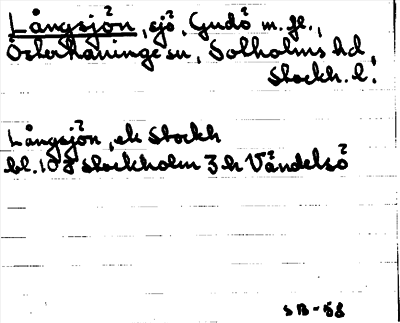 Långsjön, sjö, Gudö m. fl.,
Österhaninge sn, Sotholms hd,
Stockh. l.
Långsjön, ek Stockh
bl. 10 I Stockholm 3 h Vändelsö
SB-58